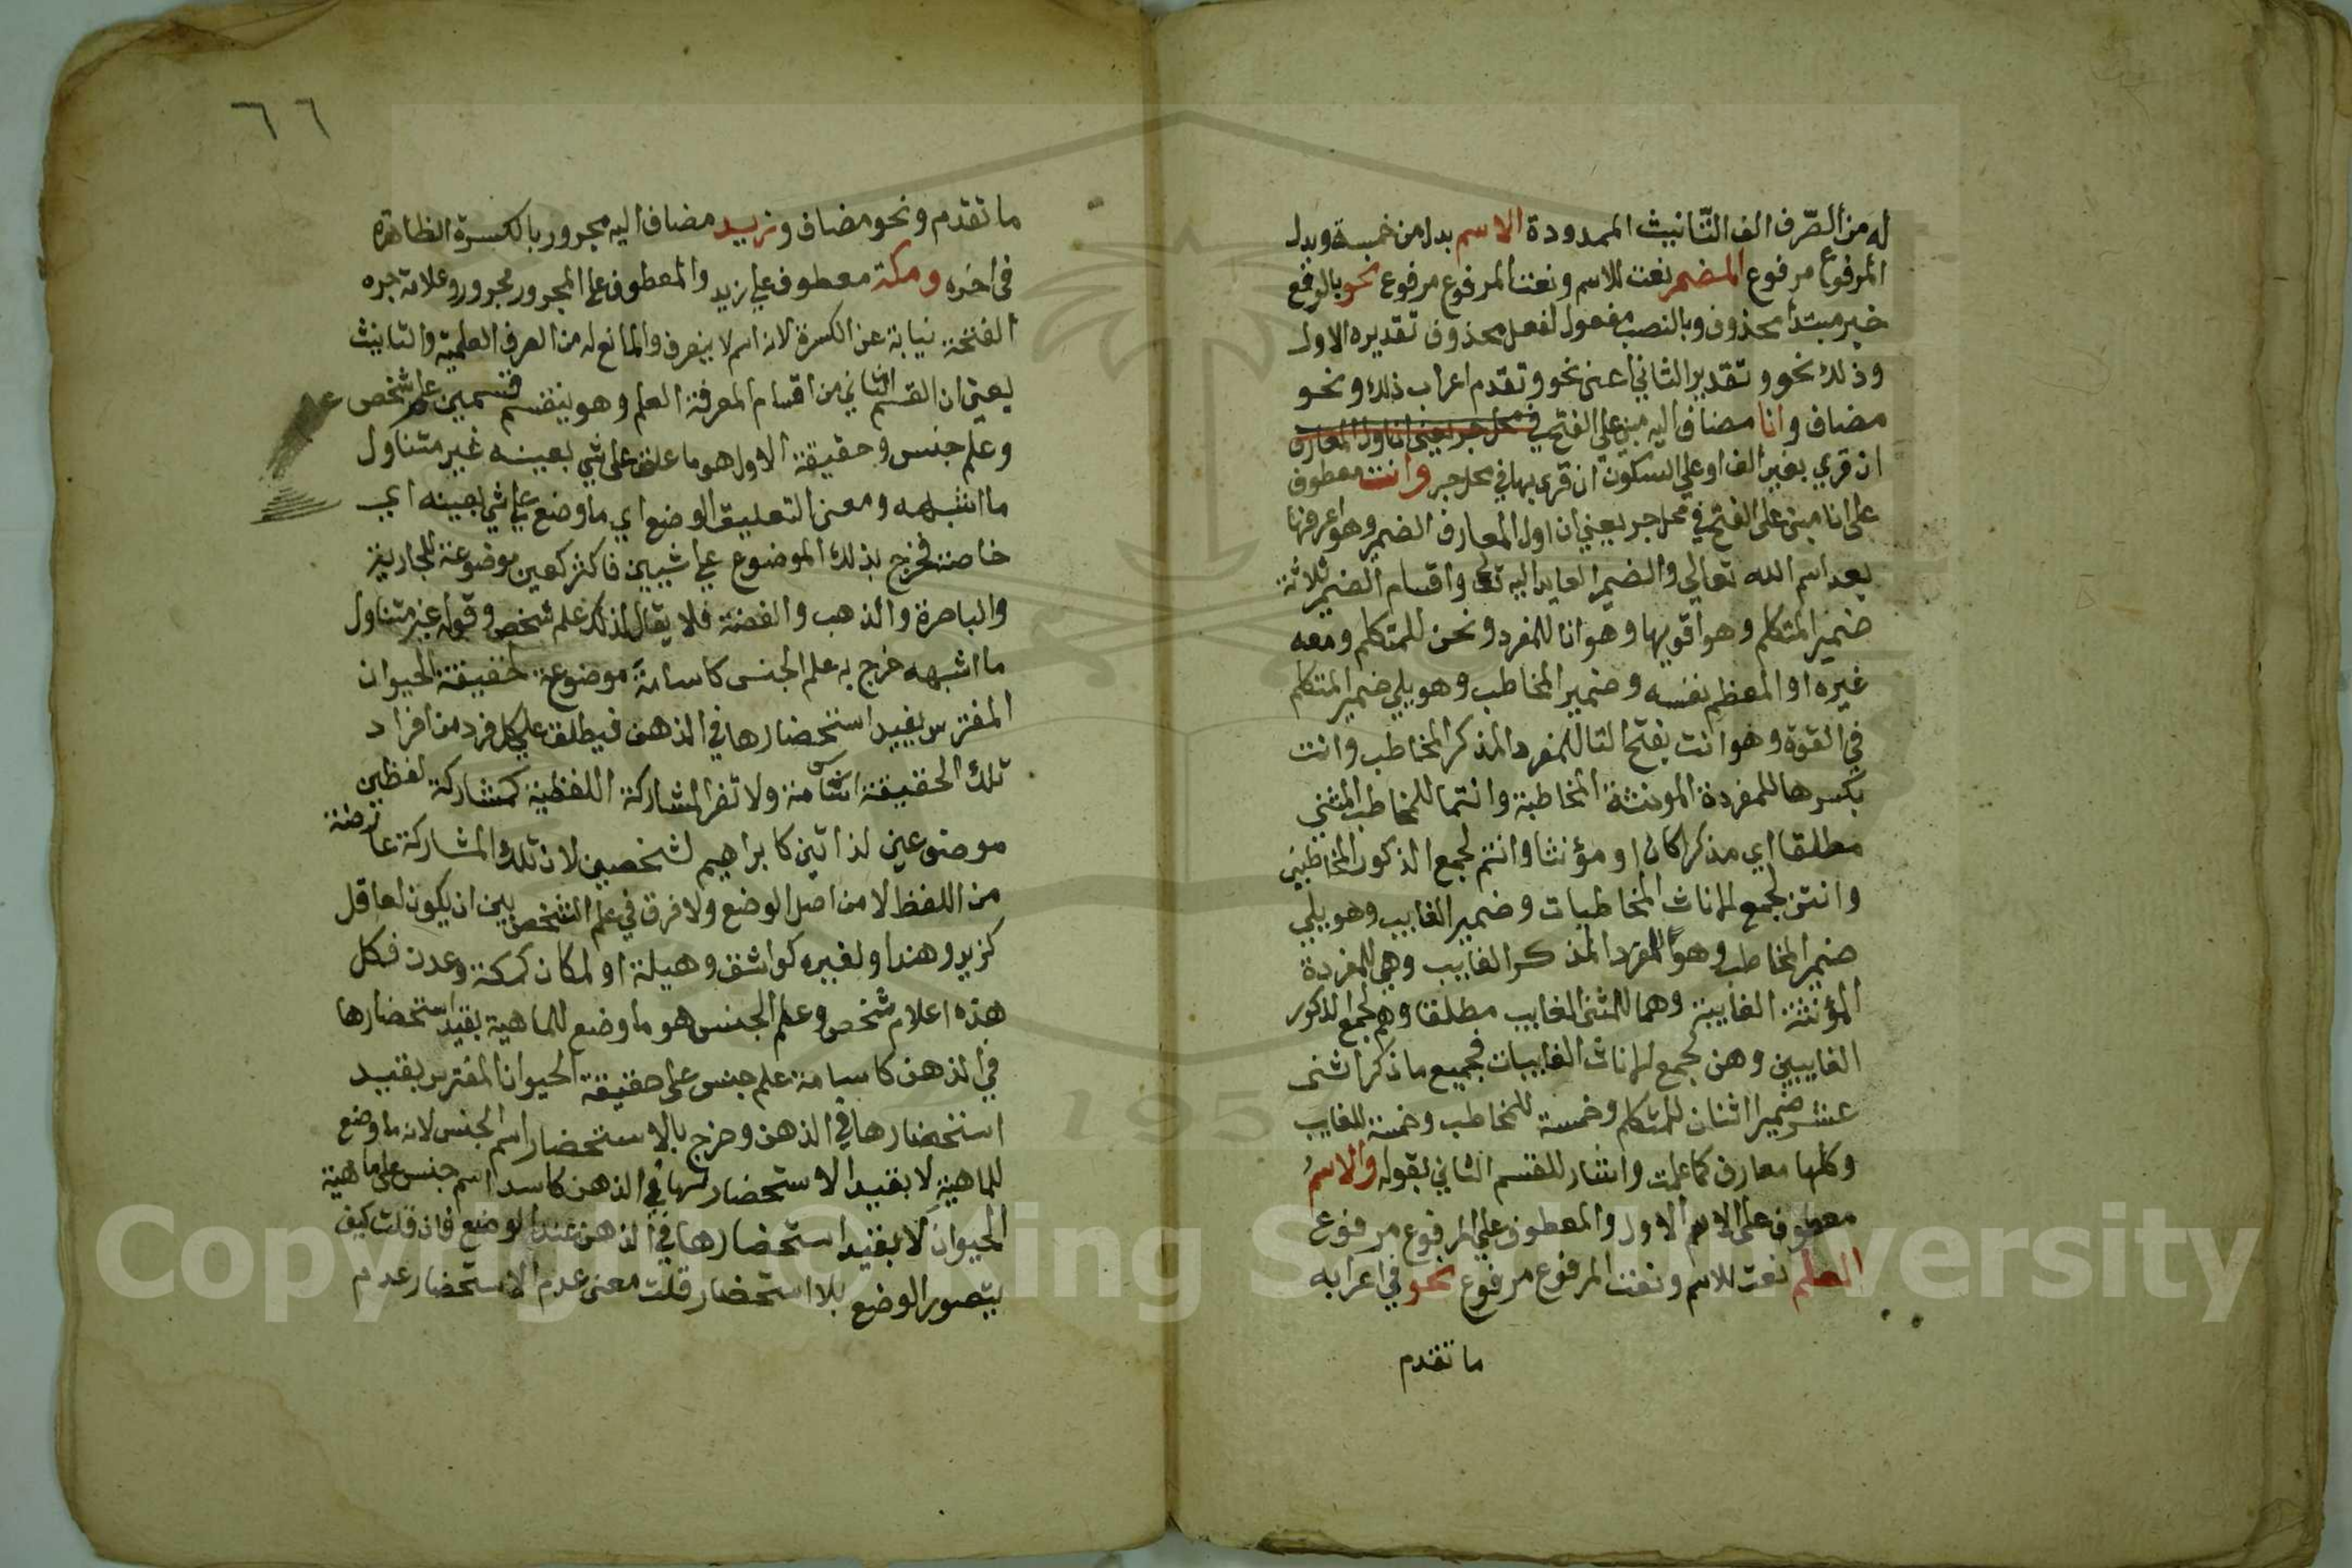 له من الصّرف الف التّانيث الممدودة الاسم بدل من خمسة وبدل
المرفوع مرفوع المضمر نعت للاسم ونعت المرفوع مرفوع نحو بالرفع
خبر مبتدأ محذوف وبالنصب مفعول لفعل محذوف تقديره الاول
وذلك نحو وتقدير الثاني اعنى نحو وتقدم اعراب ذلك ونحو
مضاف وانا مضاف اليه مبني على الفتح في محل جر يعني ان اول المعارف
ان قري بغير الف او على السكون ان قري بها في محل جر وانت معطوف
على انا مبنى على الفتح في محل جر يعني ان اول المعارف الضمير وهو اعرفها
بعد اسم الله تعالى والضمير العايد اليه تعالى واقسام الضمير ثلاثة
ضمير المتكلم وهو اقويها وهو انا للمفرد ونحن للمتكلم ومعه
غيره او المعظم نفسه وضمير المخاطب وهو يلي ضمير المتكلم
في القوة وهو انت بفتح التا للمفرد المذكر المخاطب وانت
بكسرها للمفردة المونثة المخاطبة وانتما للمخاطب المثنى
مطلقا اي مذكرا كان او مؤنثا وانتم لجمع الذكور المخاطبين
وانتن لجمع الاناث المخاطبات وضمير الغايب وهو يلي
ضمير المخاطب وهو للمفرد المذكر الغايب وهي للمفردة
المؤنثة الغايبة وهما للمثنى الغايب مطلقا وهم لجمع الذكور
الغايبين وهن لجمع الاناث الغايبات فجميع ما ذكر اثنى
عشر ضميرا اثنان للمتكلم وخمسة للمخاطب وخمسة للغايب
وكلها معارف كما علمت واشار للقسم الثاني بقوله والاسمُ
معطوف على الاسم الاول والمعطوف على المرفوع مرفوع
العلم نعت للاسم ونعت المرفوع مرفوع نحو في اعرابه
ما تقدم
٦٦
ما تقدم ونحو مضاف وزيد مضاف اليه مجرور بالكسرة الظاهرة
في اخره ومكة معطوف على زيد والمعطوف على المجرور مجرور وعلامة جره
الفتحة نيابة عن الكسرة لانه اسم لا ينصرف والمانع له من الصرف العلمية والتانيث
يعني ان القسم الثاني من اقسام المعرفة العلم وهو ينقسم قسمين علم شخص
وعلم جنس وحقيقة الاول هو ما علق على شي بعينه غير متناول
ما اشبهه ومعنى التعليق الوضع اي ما وضع على شي بعينه اي
خاصة فخرج بذلك الموضوع على شييين فاكثر كعين موضوعة للجارية
والباصرة والذهب والفضة فلا يقال لذلك علم شخص وقوله غير متناول
ما اشبهه خرج به علم الجنس كاسامة موضوعة لحقيقة الحيوان
المفترس بقيد استحضارها في الذهن فيطلق على كل فرد من افراد
تلك الحقيقة اسامة ولا تضر المشاركة اللفظية كمشاركة لفظين
موضوعين لذاتين كابراهيم لشخصين لان تلك المشاركة عارضة
من اللفظ لا من اصل الوضع ولا فرق في علم الشخص بين ان يكون لعاقل
كزيد وهند او لغيره كواشق وهيلة او لمكان كمكة وعدن فكل
هذه اعلام شخص وعلم الجنس هو ما وضع للماهية بقيد استحضارها
في الذهن كاسامة علم جنس على حقيقة الحيوان المفترس بقيد
استحضارها في الذهن وخرج بالاستحضار اسم الجنس لانه ما وضع
للماهية لا بقيد الاستحضار لها في الذهن كاسد اسم جنس على ماهية
الحيوان لا بقيد استحضارها في الذهن عند الوضع فان قلت كيف
يتصور الوضع بلا استحضار قلت معنى عدم الاستحضار عدم
Copyright © King Saud University
1957